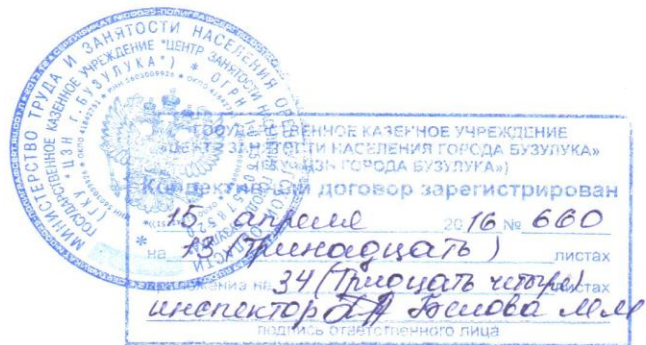 МИНИСТЕРСТВО ТРУДА И ЗАНЯТОСТИ НАСЕЛЕНИЯ
ГОСУДАРСТВЕННОЕ КАЗЕННОЕ УЧРЕЖДЕНИЕ "ЦЕНТР ЗАНЯТОСТИ
(ГКУ "ЦЗН Г. БУЗУЛУКА")
ГОСУДАРСТВЕННОЕ КАЗЕННОЕ УЧРЕЖДЕНИЕ
«ЦЕНТР ЗАНЯТОСТИ НАСЕЛЕНИЯ ГОРОДА БУЗУЛУКА»
ЦЗН ГОРОДА БУЗУЛУКА»)
Коллективный договор зарегистрирован
15 апреля 2016 № 660
на 13 (Тринадцать) листах
34 (Тридцать четыре) листах
инспектор Белова М.М
подпись ответственного лица